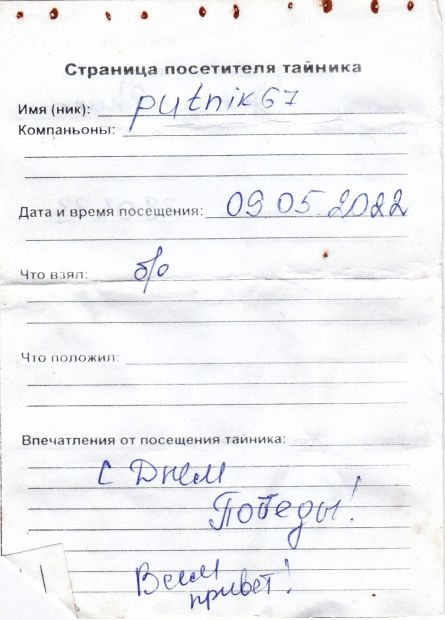 Страница посетителя тайника
Имя (ник): putnik67
Компаньоны:
Дата и время посещения: 09 05. 2022
Что взял: б/о
Что положил:
Впечатления от посещения тайника:
С Днем
Победы!
Всем
привет!